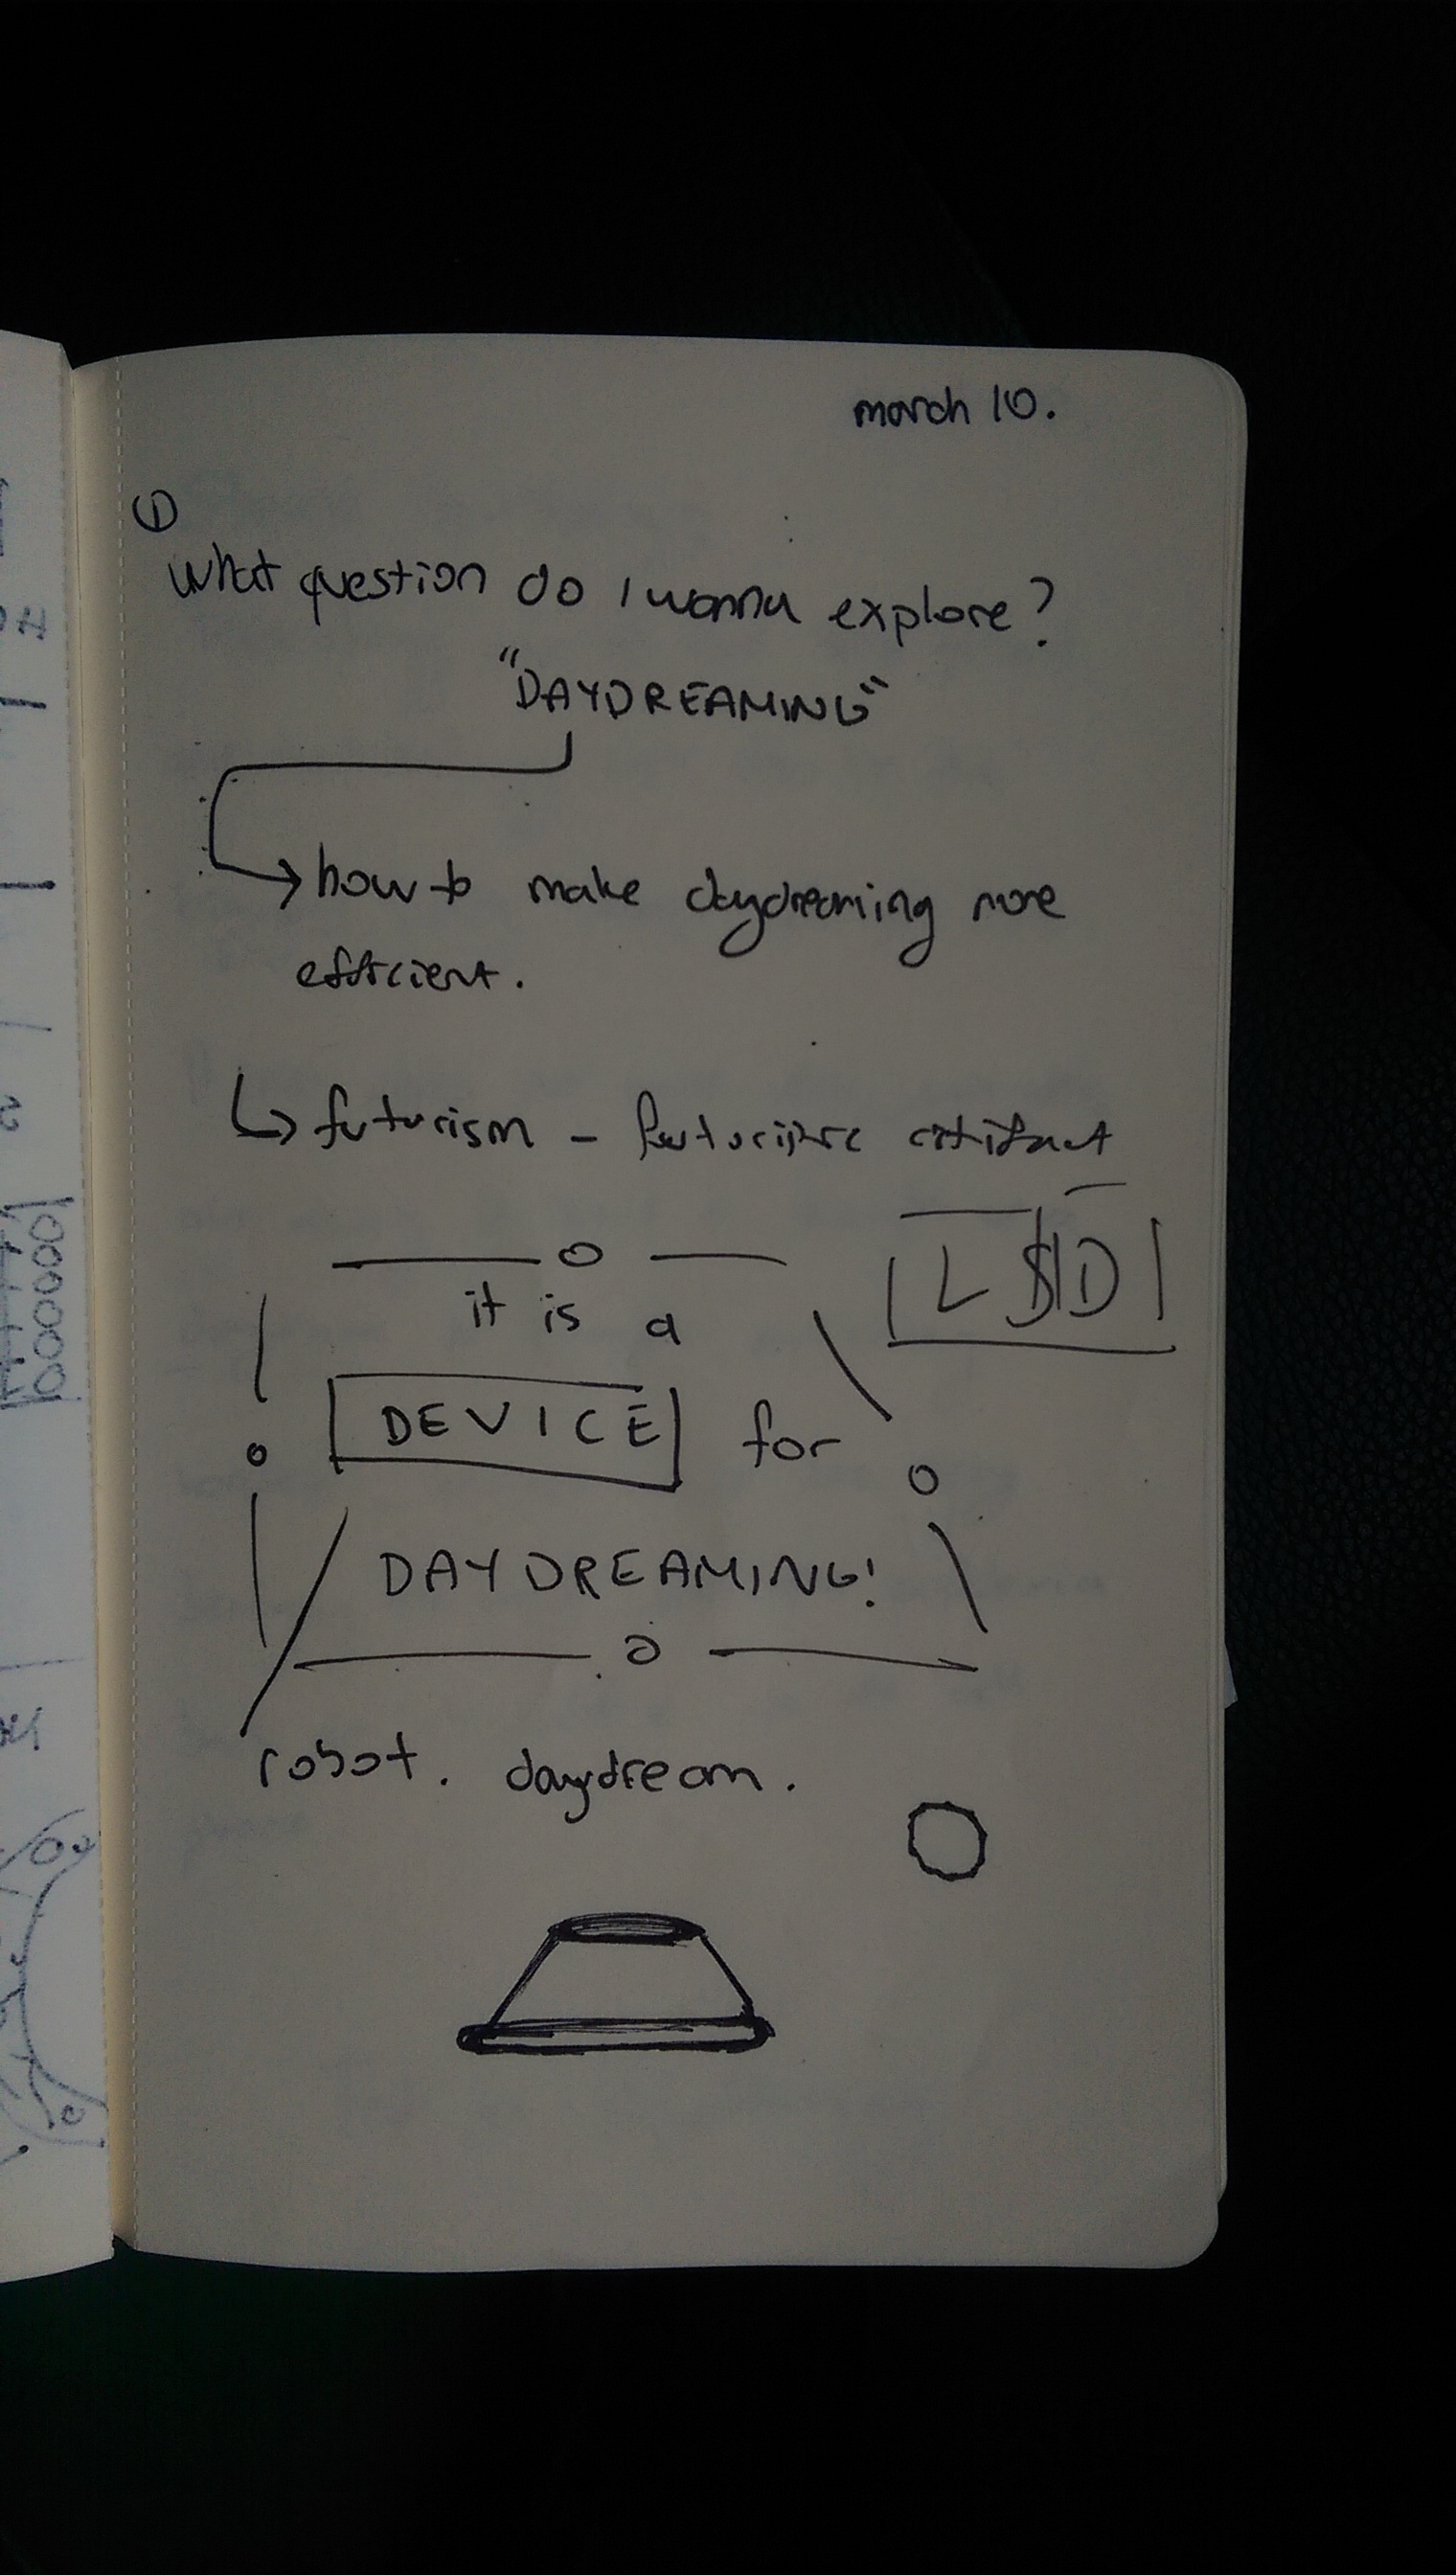 march 10.
①
what question do I wanna explore?
"DAYDREAMING"
how to make daydreaming more
efficient.
futurism - futuristic artifact
LSD
it is a
DEVICE for
DAYDREAMING!
robot. daydream.